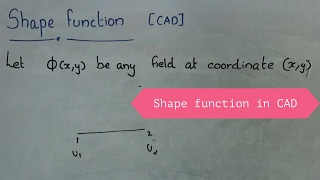 Shape function [CAD]
Let Φ(x,y) be any field at coordinate (x,y)
Shape function in CAD
1 2
U₁ U₂